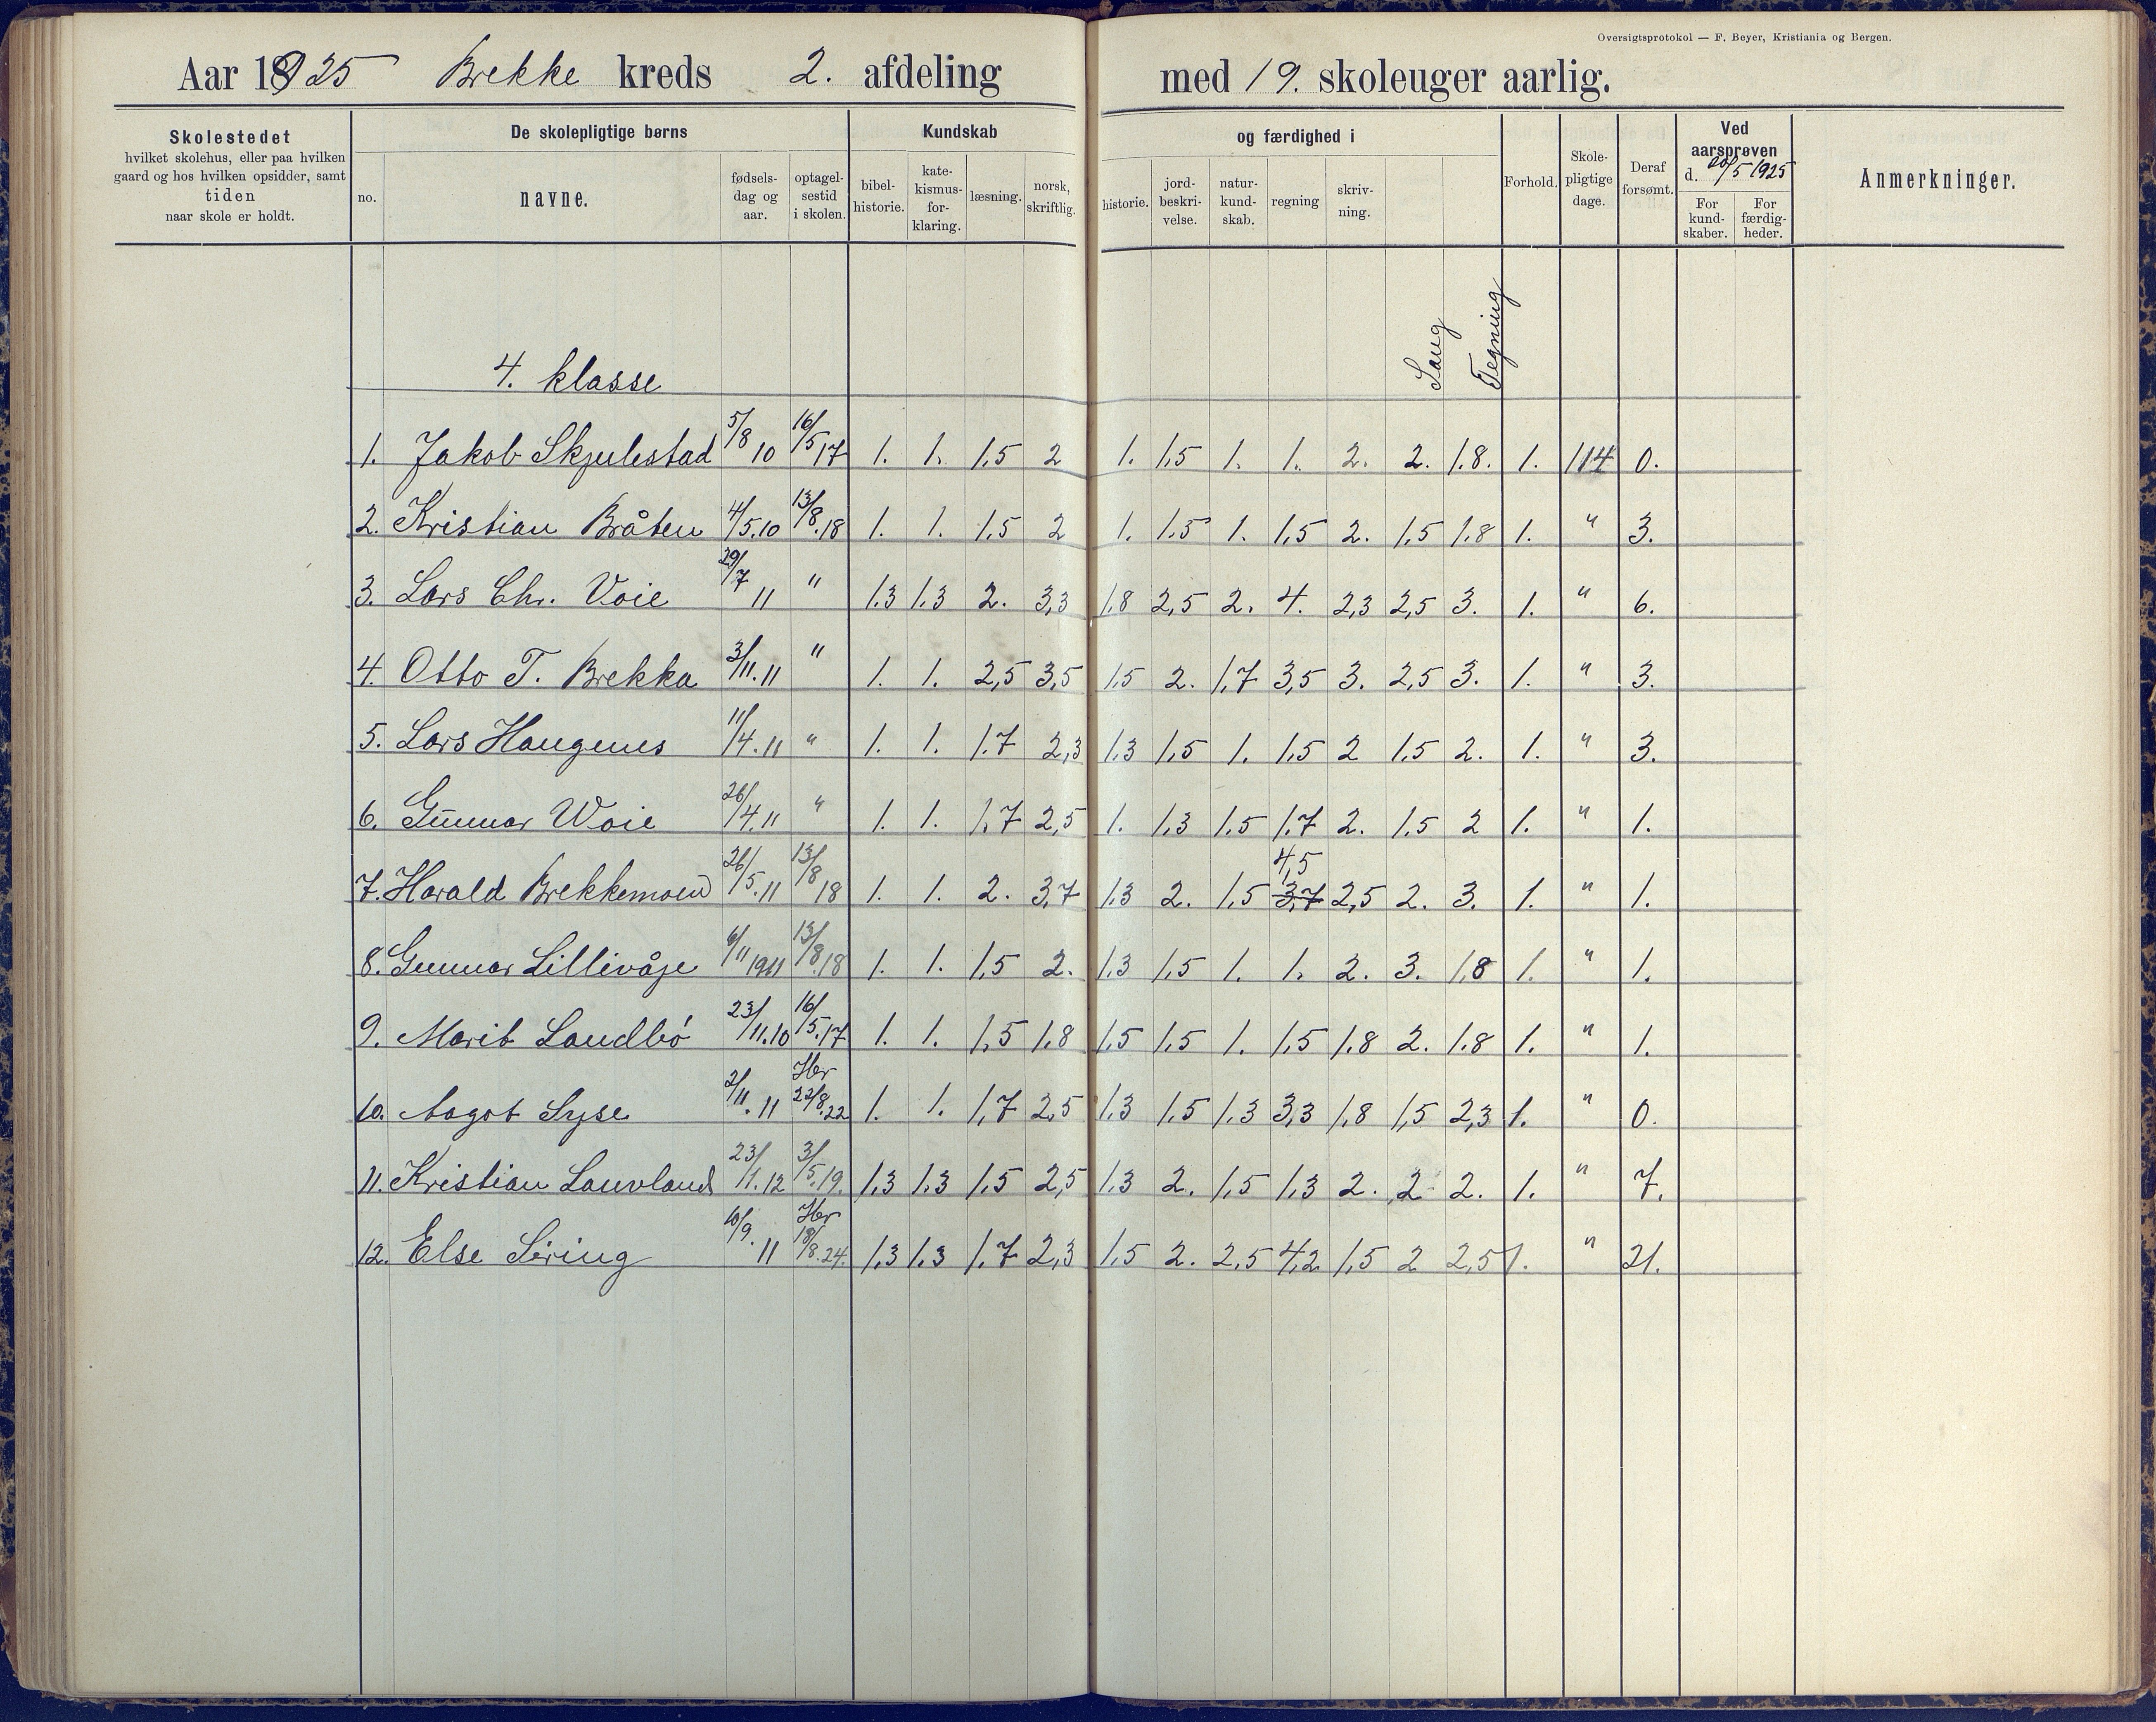 Oversigtsprotokol — F. Beyer, Kristiania og Bergen.
Aar 1925 Brekke kreds 2. afdeling med 19. skoleuger aarlig.
Skolestedet
hvilket skolehus, eller paa hvilken
gaard og hos hvilken opsidder, samt
tiden
naar skole er holdt.
De skolepligtige børns
no.
navne.
fødsels-
dag og
aar.
optagel-
sestid
i skolen.
Kundskab
bibel-
historie.
kate-
kismus-
for-
klaring.
læsning.
norsk,
skriftlig.
og færdighed i
historie.
jord-
beskri-
velse.
natur-
kund-
skab.
regning
skriv-
ning.
Sang
Tegning
Forhold.
Skole-
pligtige
dage.
Deraf
forsømt.
Ved
aarsprøven
d. 20/5 1925
For
kund-
skaber.
For
færdig-
heder.
Anmerkninger.
4. klasse
1. Jakob Skjulestad 5/8 10 16/5 17 1. 1. 1,5 2 1. 1,5 1. 1. 2. 2. 1.8. 1. 114 0.
2. Kristian Bråten 4/5.10 13/8.18 1. 1. 1,5 2 1. 1.5 1. 1,5 2. 1,5 1,8 1. " 3.
3. Lars Chr. Voie 29/7 11 " 1.3 1.3 2. 3,3 1.8 2,5 2. 4. 2,3 2,5 3. 1. " 6.
4. Otto T. Brekka 3/11.11 " 1. 1. 2,5 3,5 1,5 2. 1,7 3,5 3. 2,5 3. 1. " 3.
5. Lars Haugenes 11/4.11 " 1. 1. 1.7 2,3 1.3 1,5 1. 1,5 2 1.5 2. 1. " 3.
6. Gunnar Woie 26/4.11 " 1. 1. 1,7 2,5 1. 1,3 1,5 1,7 2. 1,5 2 1. " 1.
7. Harald Brekkemoen 26/5.11 13/8 18 1. 1. 2. 3,7 1.3 2. 1,5 4,5 3,7 2,5 2. 3. 1. " 1.
8. Gunnar Lillivåje 6/11 1911 13/8.18 1. 1. 1,5 2. 1.3 1,5 1. 1. 2. 3. 1,8 1. " 1.
9. Marit Landbø 23/11.10 16/5.17 1. 1. 1,5 1.8 1,5 1.5 1. 1,5 1.8 2. 1.8 1. " 1.
10. Aagot Syse 2/11.11 Hbr 22/8.22 1. 1. 1,7 2,5 1.3 1.5 1.3 3,3 1.8 1,5 2,3 1. " 0.
11. Kristian Lauvland 23/1.12 3/5.19. 1.3 1.3 1.5 2,5 1.3 2. 1,5 1.3 2. 2 2. 1. " 7.
12. Else Sering 10/9. 11 Hbr 18/8.24. 1,3 1.3 1.7 2,3 1.5 2. 2,5 4,2 1,5 2 2,5 1. " 21.